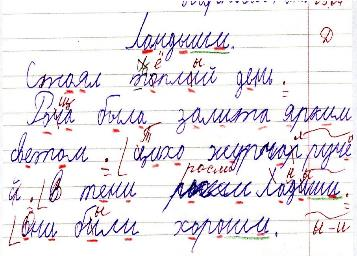 Ландыши. Д
Стоял тёплый день.
Роща была залита ярким
светом. Тихо журчал ручe
й. В тени росли Ладыши.
Они были хороши. ы-и